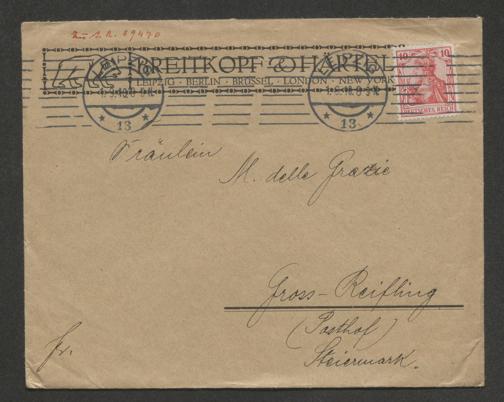 Z. 1.2. 69470
BREITKOPF & HÄRTEL
LEIPZIG · BERLIN · BRÜSSEL · LONDON · NEW YORK
LEIPZIG
13
LEIPZIG
13
10 10
DEUTSCHES REICH
Fräulein
M. delle Grazie
Gross-Reifling
(Posthof)
Steiermark.
Fr.